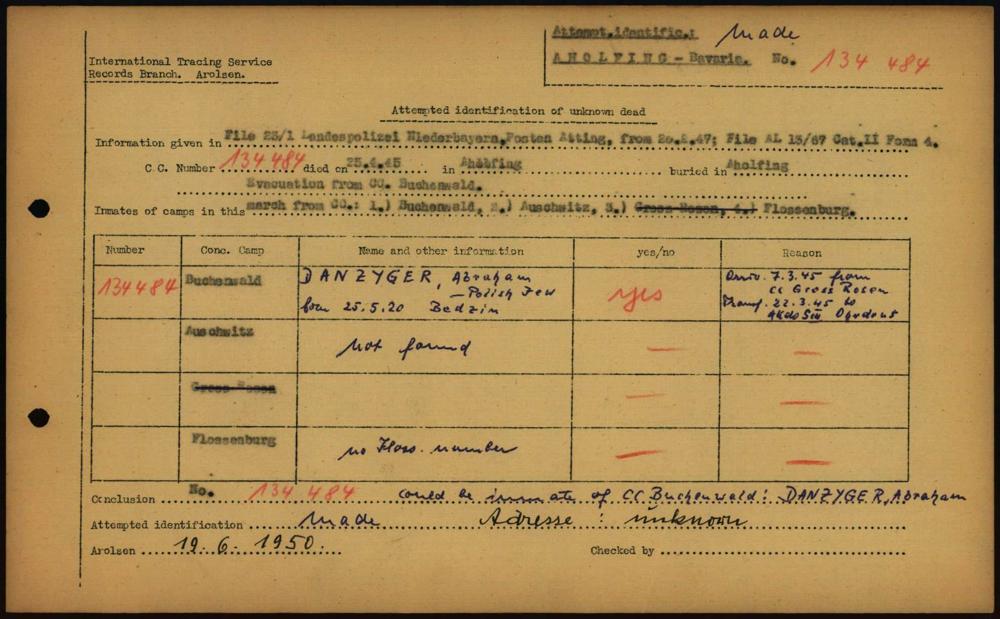 Attempt.identific.: Made
International Tracing Service
Records Branch. Arolsen.
AHOLFING - Bavaria. No. 134 484
Attempted identification of unknown dead
Information given in File 23/1 Landespolizei Niederbayern, Posten Atting, from 20.2.47; File AL 13/67 Cat.II Form 4.
C.C. Number 134484 died on 25.4.45 in Aholfing buried in Aholfing
Evacuation from CC. Buchenwald.
Inmates of camps in this march from CC.: 1.) Buchenwald, 2.) Auschwitz, 3.) Gross-Rosen, 4.) Flossenburg.
Number Conc. Camp Name and other information yes/no Reason
134484 Buchenwald DANZYGER, Abraham yes Arriv. 7.3.45 from
- Polish Jew cc Gross Rosen
born 25.5.20 Bedzin Transf. 22.3.45 to
AKdo SIII Ohrdruf
Auschwitz not found — —
Gross-Rosen — —
Flossenburg no Floss. number — —
Conclusion No. 134 484 could be inmate of CC Buchenwald: DANZYGER, Abraham
Attempted identification Made Adresse : unknown
Arolsen 19.6.1950. Checked by